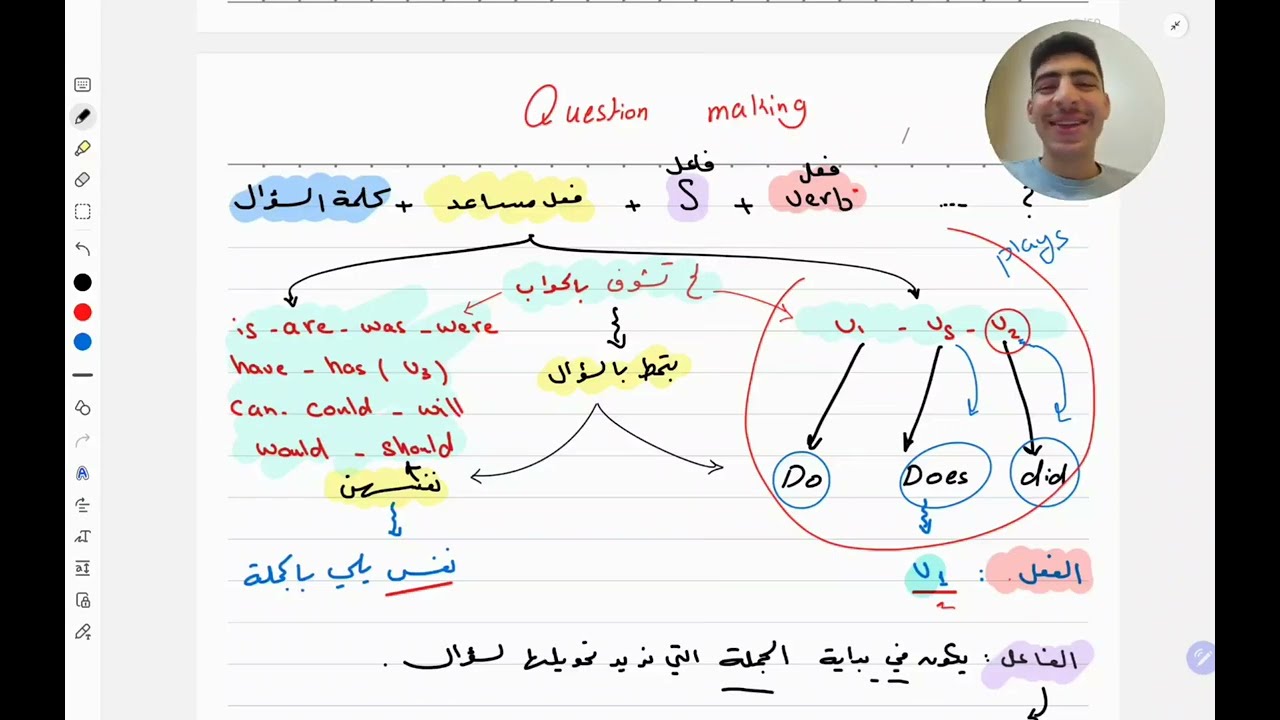 Question making
فاعل فعل
كلمة السؤال + فعل مساعد + S + verb .... ?
plays
لح تشوف بالجواب
is - are - was - were
v1 - vs - v2
have - has ( v3 )
بتحط بالسؤال
can - could - will
would - should
نفسهن
Do Does did
نفس يلي بالجملة
الفعل : v1
الفاعل : يكون في بداية الجملة التي نريد تحويلها لسؤال .